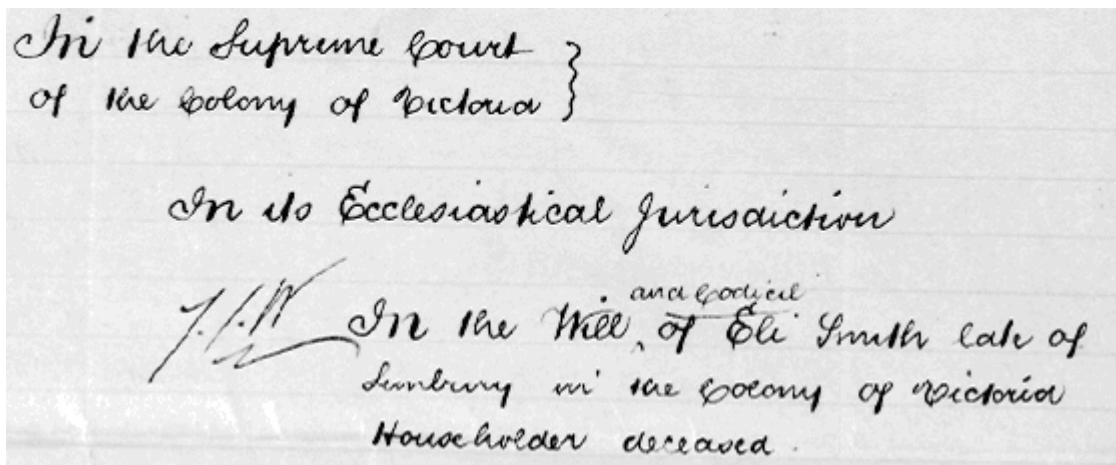 In the Supreme Court
of the Colony of Victoria
In its Ecclesiastical Jurisdiction
and Codicil
In the Will of Eli Smith late of
Sunbury in the Colony of Victoria
Householder deceased.